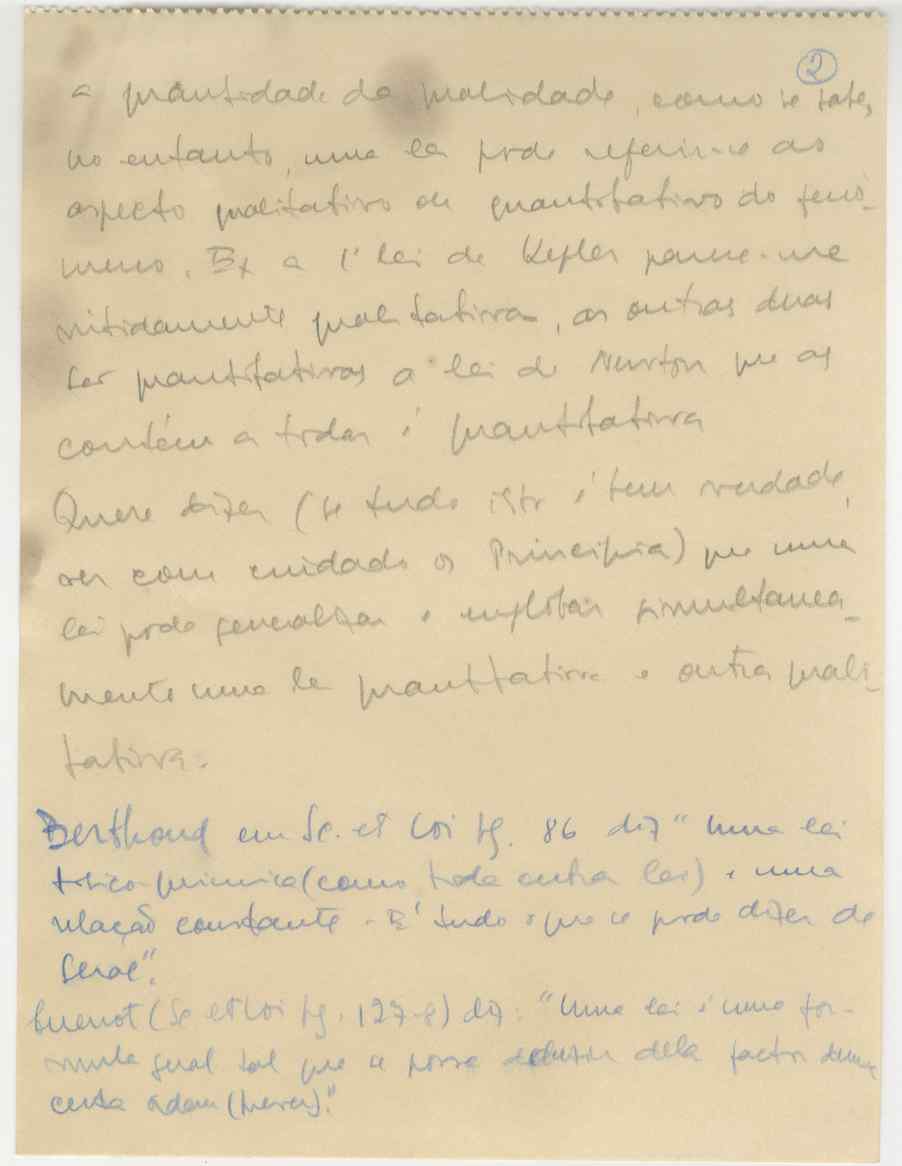 2
a quantidade da qualidade, como se sabe,
no entanto, uma lei pode referir-se ao
aspecto qualitativo ou quantitativo do fenó-
meno. Ex a 1ª lei de Kepler parece-me
nitidamente qualitativa, as outras duas
são quantitativas a lei de Newton que as
contém a todas é quantitativa
Quere dizer (se tudo isto é bem verdade,
ver com cuidado os Principia) que uma
lei pode generalizar e englobar simultanea-
mente uma lei quantitativa e outra quali-
tativa.
Berthoud em Sc. et Loi pg. 86 diz "Uma lei
físico-química (como toda outra lei) é uma
relação constante. É tudo o que se pode dizer de
geral".
Cuenot (Sc et Loi pg. 127-8) diz: "Uma lei é uma fór-
mula geral tal que se possa deduzir dela factos duma
certa ordem